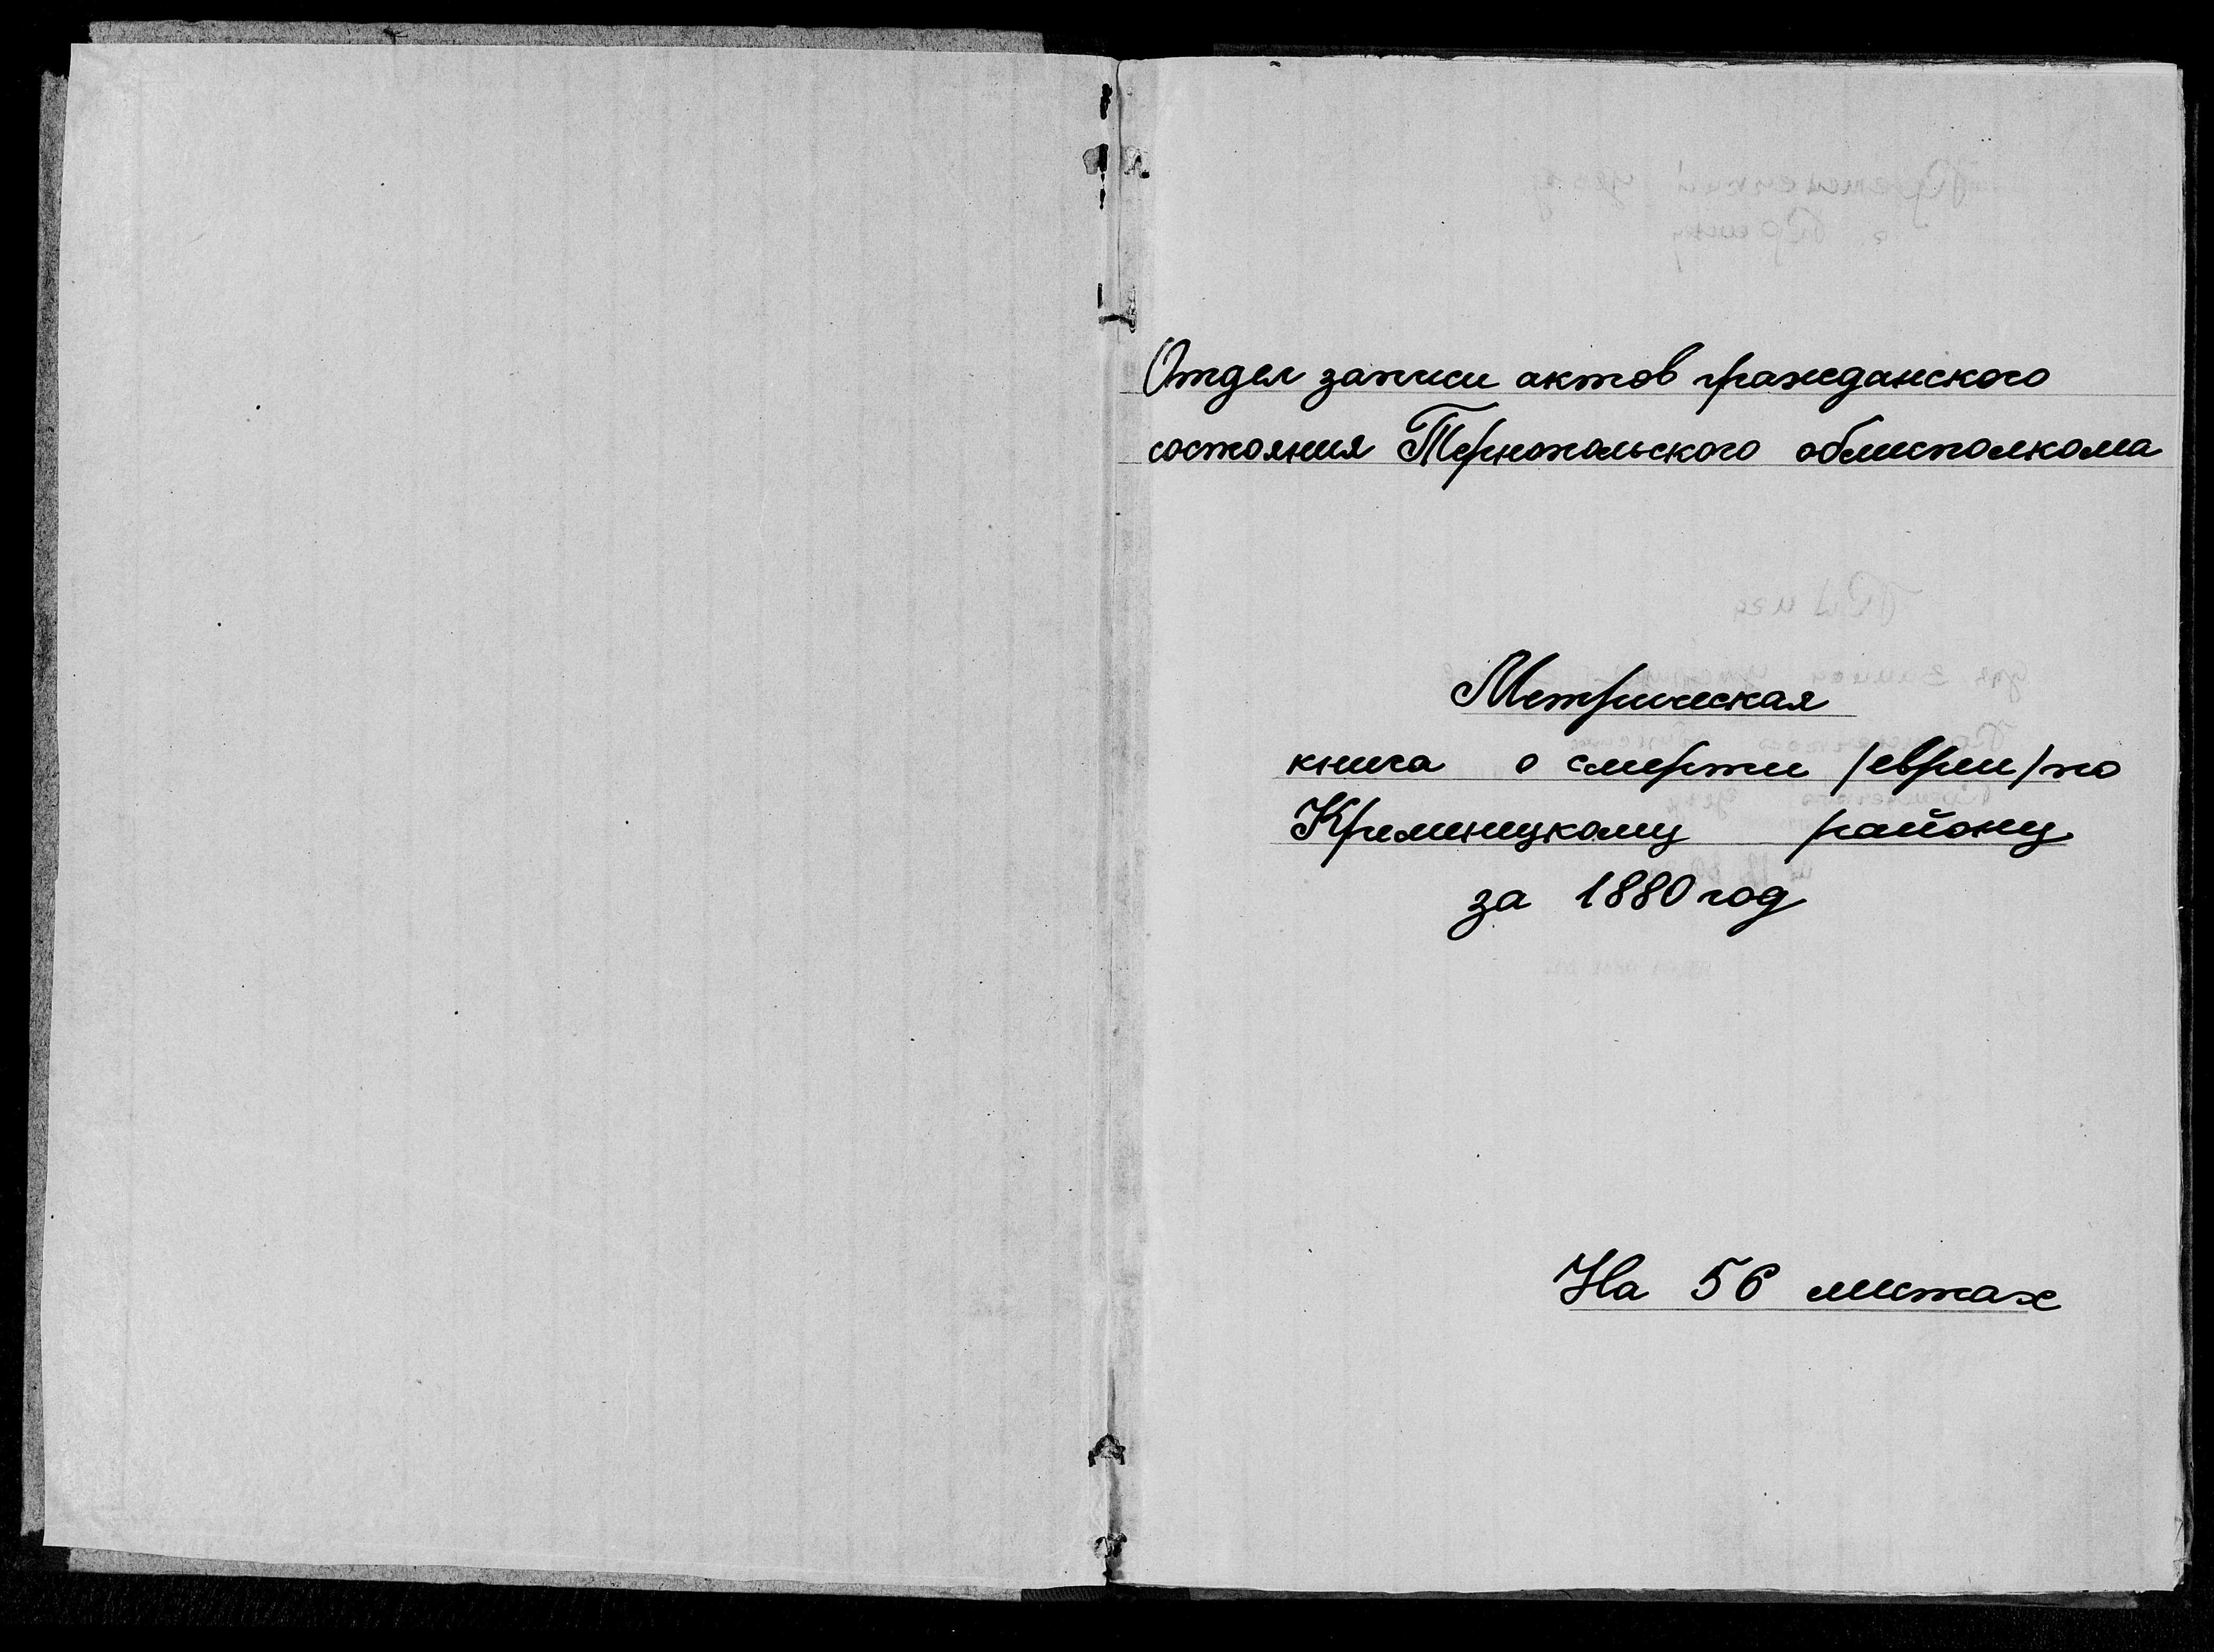 Отдел записи актов гражданского
состояния Тернопольского облисполкома
Метрическая
книга о смерти /евреи/ по
Кременецкому району
за 1880 год
На 56 листах